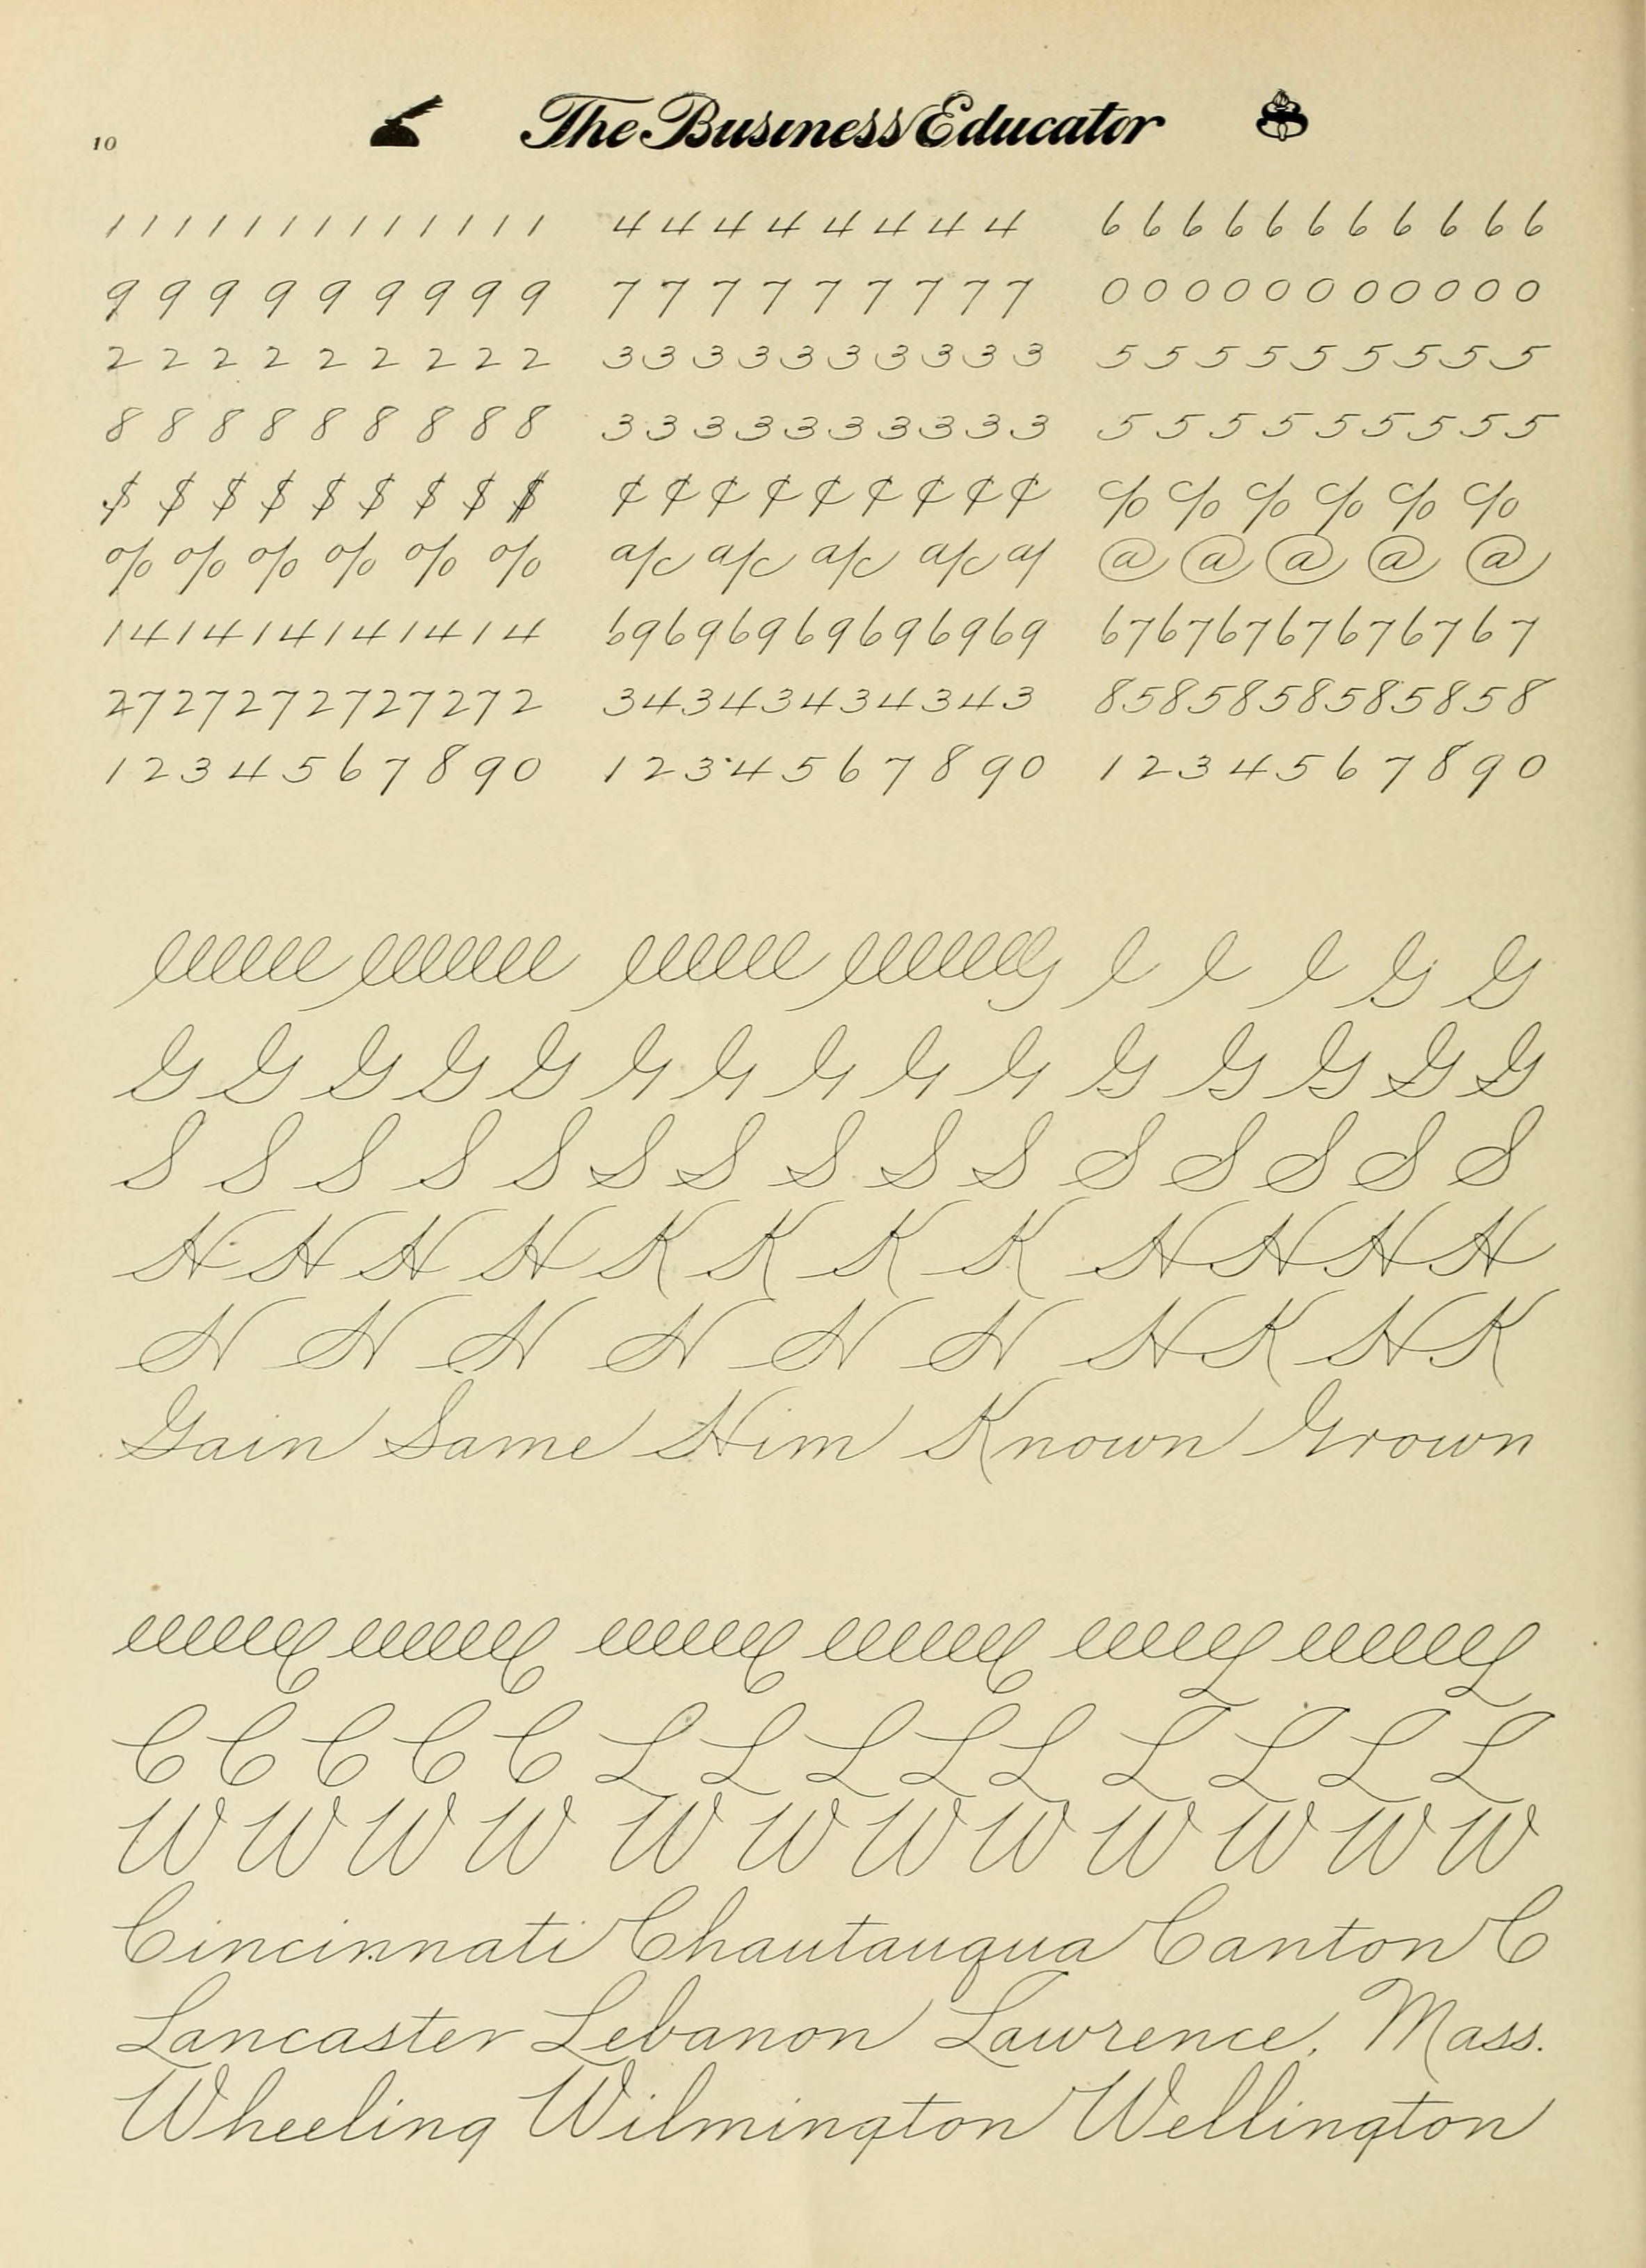 10 The Business Educator
1 1 1 1 1 1 1 1 1 1 1 1 1 4 4 4 4 4 4 4 4 6 6 6 6 6 6 6 6 6 6 6
9 9 9 9 9 9 9 9 9 7 7 7 7 7 7 7 7 7 0 0 0 0 0 0 0 0 0 0 0
2 2 2 2 2 2 2 2 2 3 3 3 3 3 3 3 3 3 3 5 5 5 5 5 5 5 5 5
8 8 8 8 8 8 8 8 8 3 3 3 3 3 3 3 3 3 3 5 5 5 5 5 5 5 5 5
$ $ $ $ $ $ $ $ $ ¢ ¢ ¢ ¢ ¢ ¢ ¢ ¢ ¢ c/o c/o c/o c/o c/o c/o
% % % % % % a/c a/c a/c a/c a/ @ @ @ @ @
141414141414 69696969696969 67676767676767
2727272727272 34343434343 8585858585858
1 2 3 4 5 6 7 8 9 0 1 2 3 4 5 6 7 8 9 0 1 2 3 4 5 6 7 8 9 0
lllllll llllllll lllllll llllllllG l l l G G
G G G G G G G G G G G G G G G
S S S S S S S S S S S S S S S
H H H H K K K K H H H H
H H H H H H H K H K
Gain Same Him Known Grown
C C C C C L L L L L L L L L
W W W W W W W W W W W W
Cincinnati Chautauqua Canton C
Lancaster Lebanon Lawrence, Mass.
Wheeling Wilmington Wellington